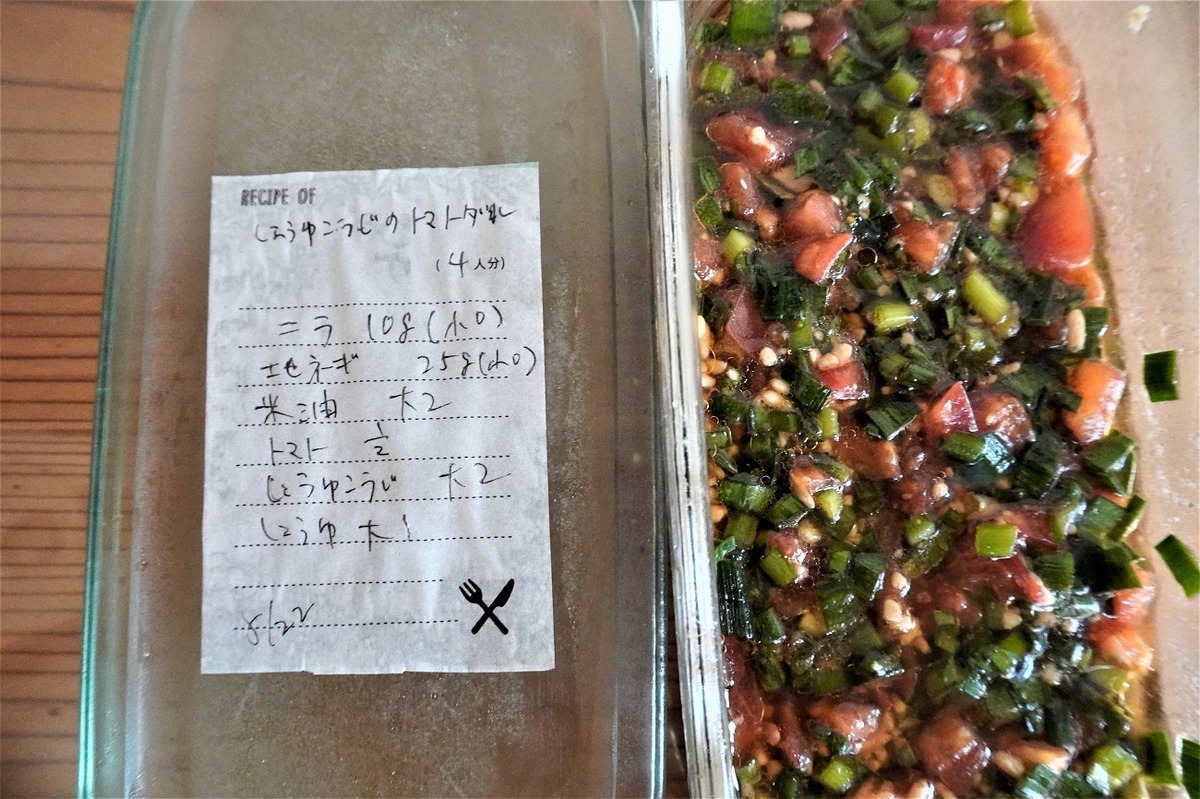 RECIPE OF
しょうゆこうじのトマトダレ
(4人分)
ニラ 10g(小口)
玉ネギ 25g(小口)
米油 大2
トマト 1/2
しょうゆこうじ 大2
しょうゆ 大1
5/22